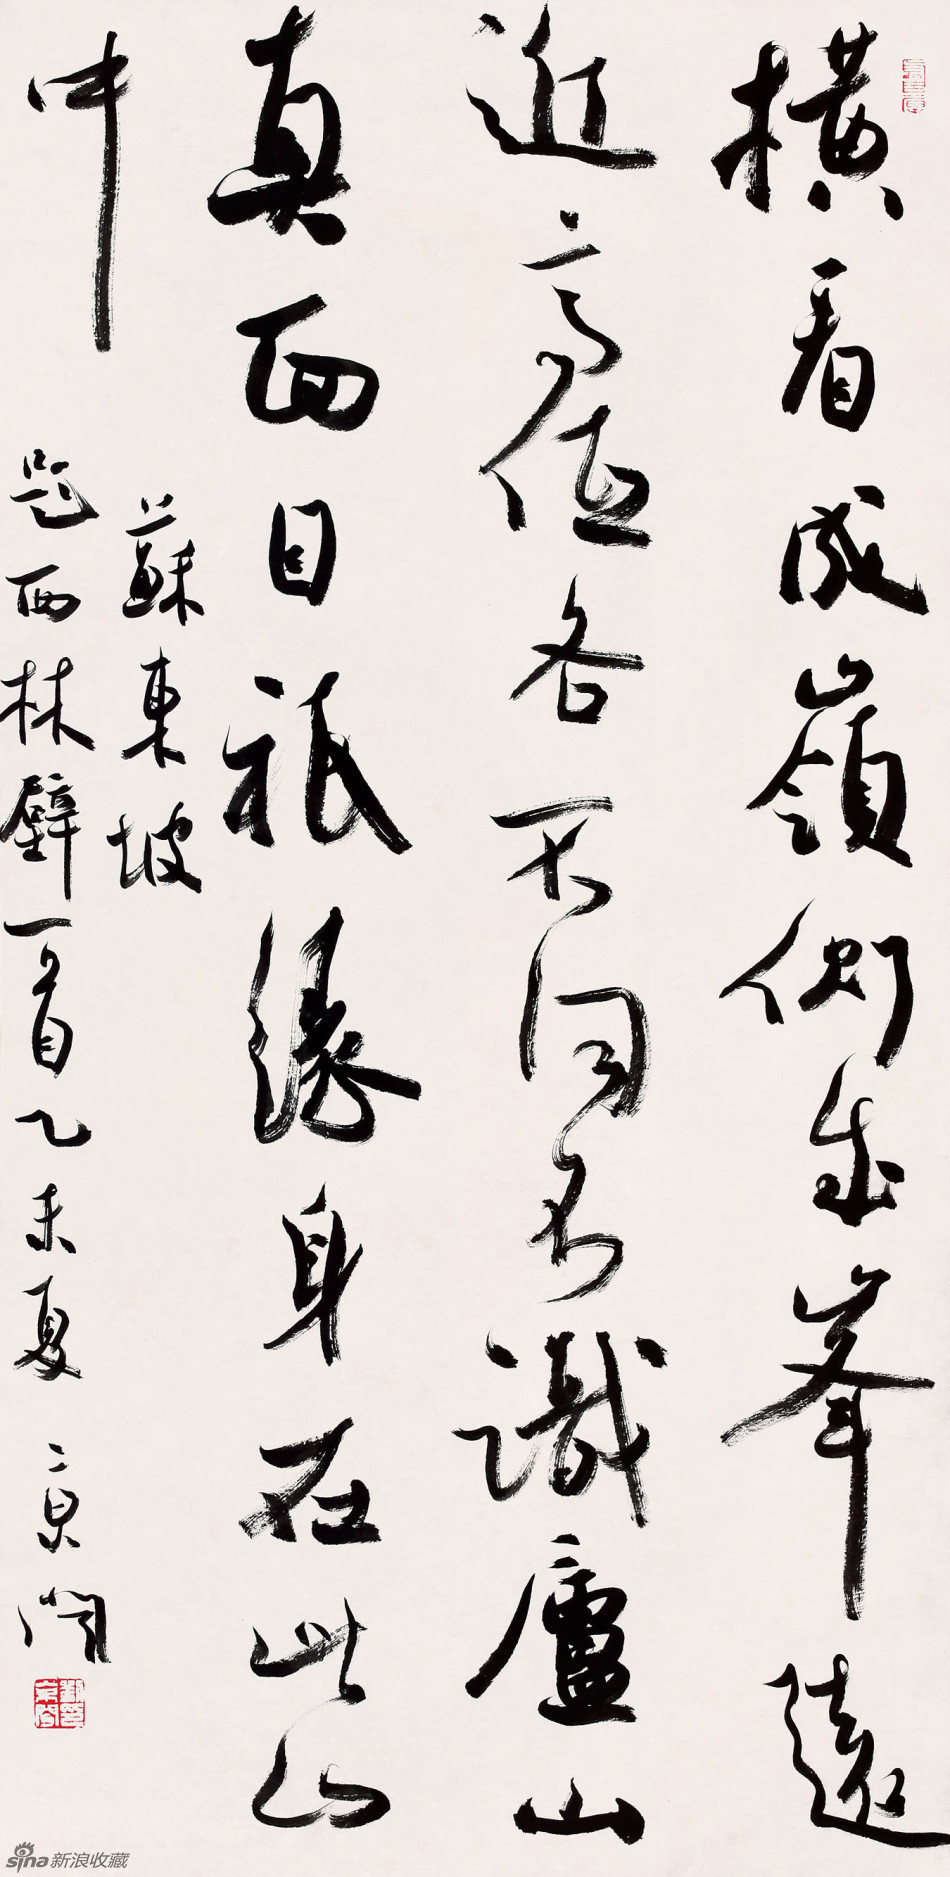 橫看成嶺側成峯遠
近高低各不同不識廬山
真面目祇緣身在此山
中
蘇東坡
題西林壁一首乙未夏 京聞
sina新浪收藏